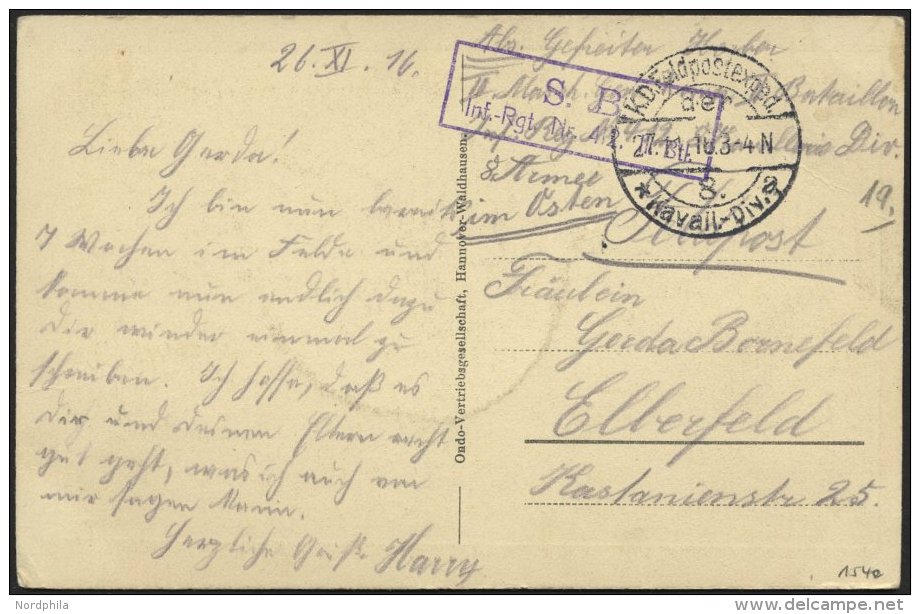 26. XI. 16.
Liebe Gerda!
Ich bin nun bereits
7 Wochen im Felde und
komme nun endlich dazu
Dir wieder einmal zu
schreiben. Ich hoffe, daß es
Dir und Deinen Eltern recht
gut geht, was ich auch von
mir sagen kann.
Herzliche Grüße Harry
Ondo-Vertriebsgesellschaft, Hannover-Waldhausen.
Abs. Gefreiten
Bataillon
Div.
8. Armee
im Osten
S. B.
Inf.-Rgt. Nr. 42.
K.D. Feldpostexped.
der
3-4 N
8.
* Kavall.-Div. a
19.
Feldpost
Fräulein
Gerda Bornefeld
Elberfeld
Kastanienstr 25.
154a
Nordphila
delcampe.net